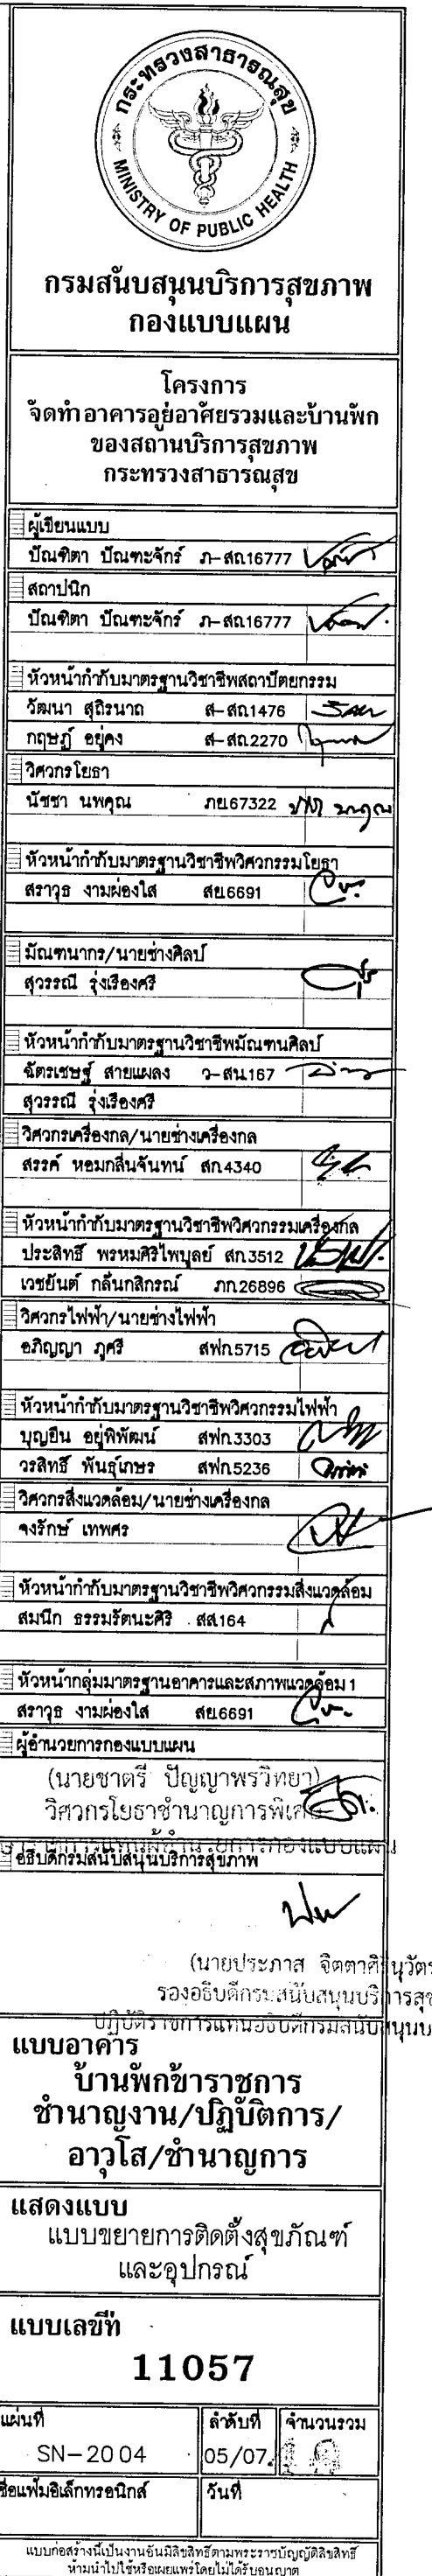 กระทรวงสาธารณสุข
MINISTRY OF PUBLIC HEALTH
กรมสนับสนุนบริการสุขภาพ
กองแบบแผน
โครงการ
จัดทำอาคารอยู่อาศัยรวมและบ้านพัก
ของสถานบริการสุขภาพ
กระทรวงสาธารณสุข
ผู้เขียนแบบ
ปัณฑิตา ปัณฑะจักร์ ภ-สถ.16777
สถาปนิก
ปัณฑิตา ปัณฑะจักร์ ภ-สถ.16777
หัวหน้ากำกับมาตรฐานวิชาชีพสถาปัตยกรรม
วัฒนา สุถิรนาถ ส-สถ.1476
กฤษฎ์ อยู่คง ส-สถ.2270
วิศวกรโยธา
นัชชา นพคุณ ภย.67322
หัวหน้ากำกับมาตรฐานวิชาชีพวิศวกรรมโยธา
สราวุธ งามผ่องใส สย.6691
มัณฑนากร/นายช่างศิลป์
สุวรรณี รุ่งเรืองศรี
หัวหน้ากำกับมาตรฐานวิชาชีพมัณฑนศิลป์
ฉัตรเชษฐ์ สายแผลง ว-สน.167
สุวรรณี รุ่งเรืองศรี
วิศวกรเครื่องกล/นายช่างเครื่องกล
สรรค์ หอมกลิ่นจันทน์ สก.4340
หัวหน้ากำกับมาตรฐานวิชาชีพวิศวกรรมเครื่องกล
ประสิทธิ์ พรหมศิริไพบูลย์ สก.3512
เวชยันต์ กลั่นกสิกรณ์ ภก.26896
วิศวกรไฟฟ้า/นายช่างไฟฟ้า
อภิญญา ภูศรี สฟก.5715
หัวหน้ากำกับมาตรฐานวิชาชีพวิศวกรรมไฟฟ้า
บุญยืน อยู่พิพัฒน์ สฟก.3303
วรสิทธิ์ พันธุ์เกษร สฟก.5236
วิศวกรสิ่งแวดล้อม/นายช่างเครื่องกล
จงรักษ์ เทพศร
หัวหน้ากำกับมาตรฐานวิชาชีพวิศวกรรมสิ่งแวดล้อม
สมนึก ธรรมรัตนะศิริ สส.164
หัวหน้ากลุ่มมาตรฐานอาคารและสภาพแวดล้อม 1
สราวุธ งามผ่องใส สย.6691
ผู้อำนวยการกองแบบแผน
(นายชาตรี ปัญญาพรวิทยา)
วิศวกรโยธาชำนาญการพิเศษ
อธิบดีกรมสนับสนุนบริการสุขภาพ
(นายประภาส จิตตาศิรินุวัตร
รองอธิบดีกรมสนับสนุนบริการสุข
ปฏิบัติราชการแทนอธิบดีกรมสนับสนุนบ
แบบอาคาร
บ้านพักข้าราชการ
ชำนาญงาน/ปฏิบัติการ/
อาวุโส/ชำนาญการ
แสดงแบบ
แบบขยายการติดตั้งสุขภัณฑ์
และอุปกรณ์
แบบเลขที่
11057
แผ่นที่ ลำดับที่ จำนวนรวม
SN-20 04 05/07
ชื่อแฟ้มอิเล็กทรอนิกส์ วันที่
แบบก่อสร้างนี้เป็นงานอันมีลิขสิทธิ์ตามพระราชบัญญัติลิขสิทธิ์
ห้ามนำไปใช้หรือเผยแพร่โดยไม่ได้รับอนุญาต